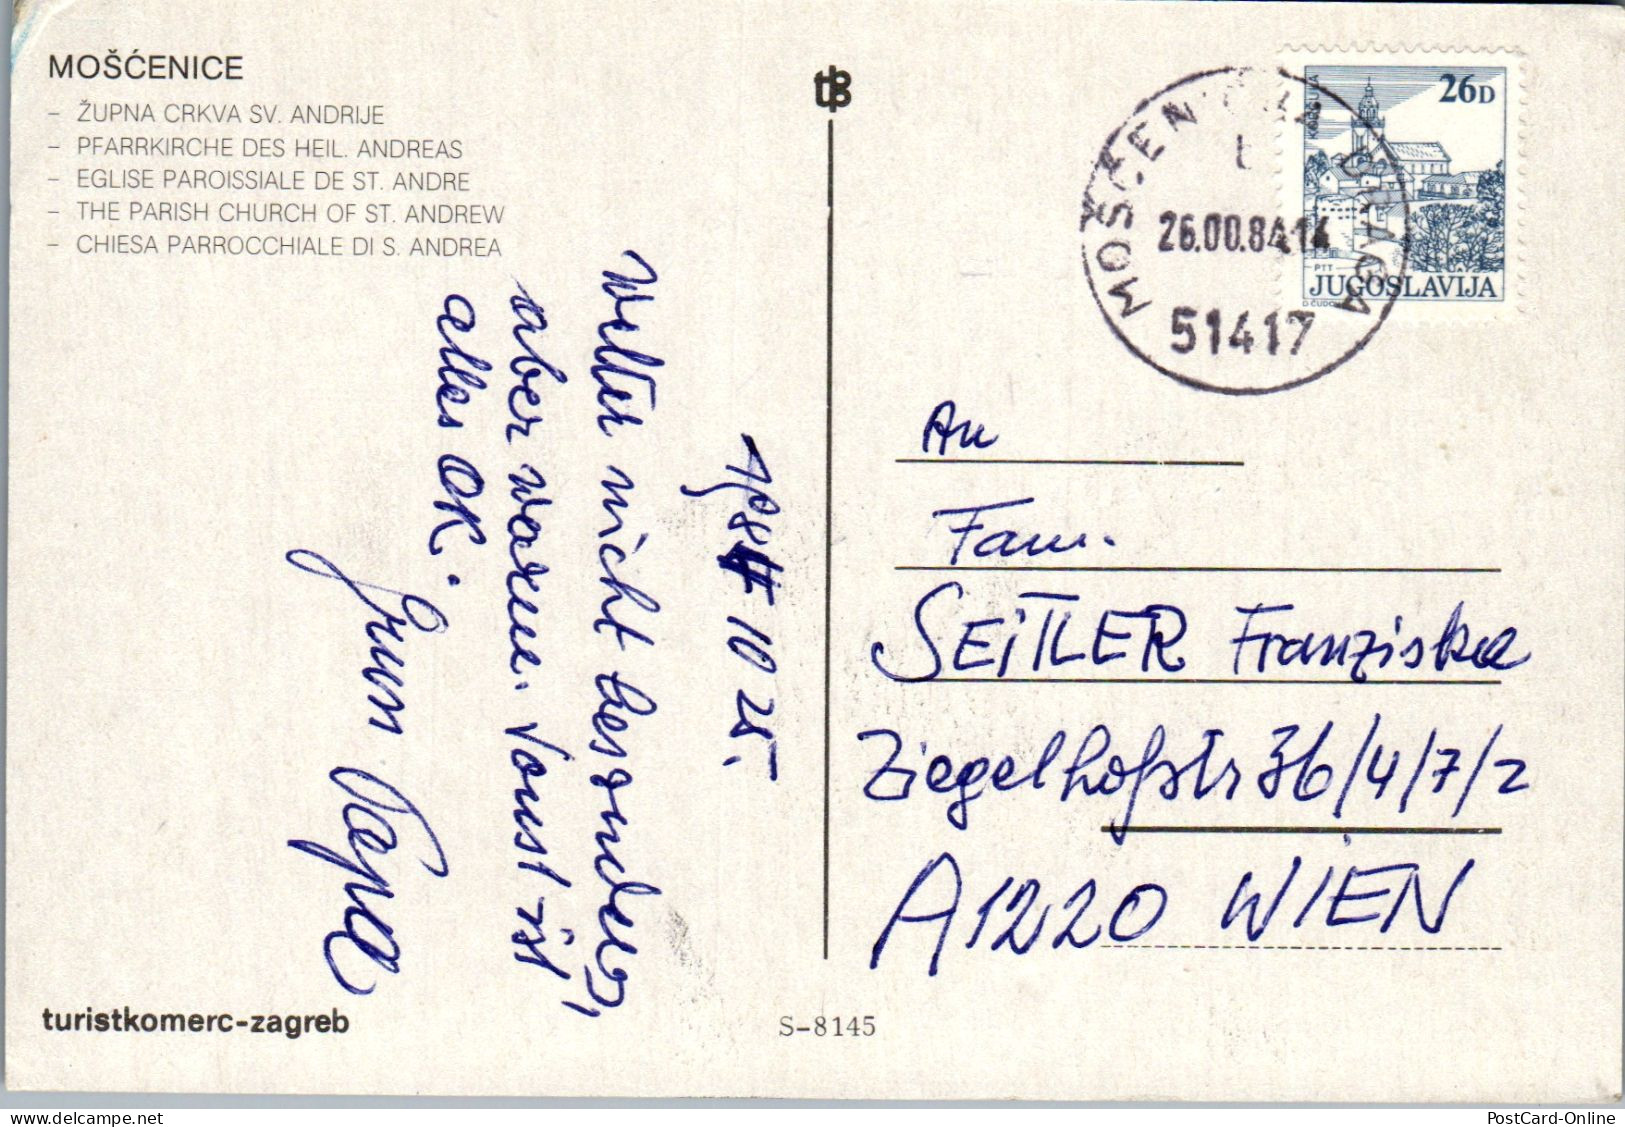 MOŠĆENICE
– ŽUPNA CRKVA SV. ANDRIJE
– PFARRKIRCHE DES HEIL. ANDREAS
– EGLISE PAROISSIALE DE ST. ANDRE
– THE PARISH CHURCH OF ST. ANDREW
– CHIESA PARROCCHIALE DI S. ANDREA
1984 10 25.
Wetter nicht besonders,
aber warm. Sonst ist
alles OK.
Papa
turistkomerc-zagreb
S-8145
tB
MOŠĆENIČKA DRAGA
26.00.84 14
51417
26D
PTT
JUGOSLAVIJA
An
Fam.
SEITLER Franziska
Ziegelhofstr 36/4/7/2
A1220 WIEN
PostCard-Online